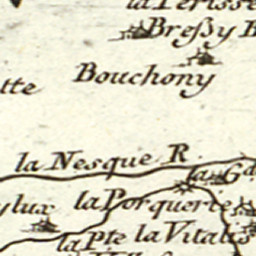 la Perisse
Breſsy
Bouchony
tte
la Nesque R.
la Ga
la Porquerie
ylux
la Pte la Vitalis